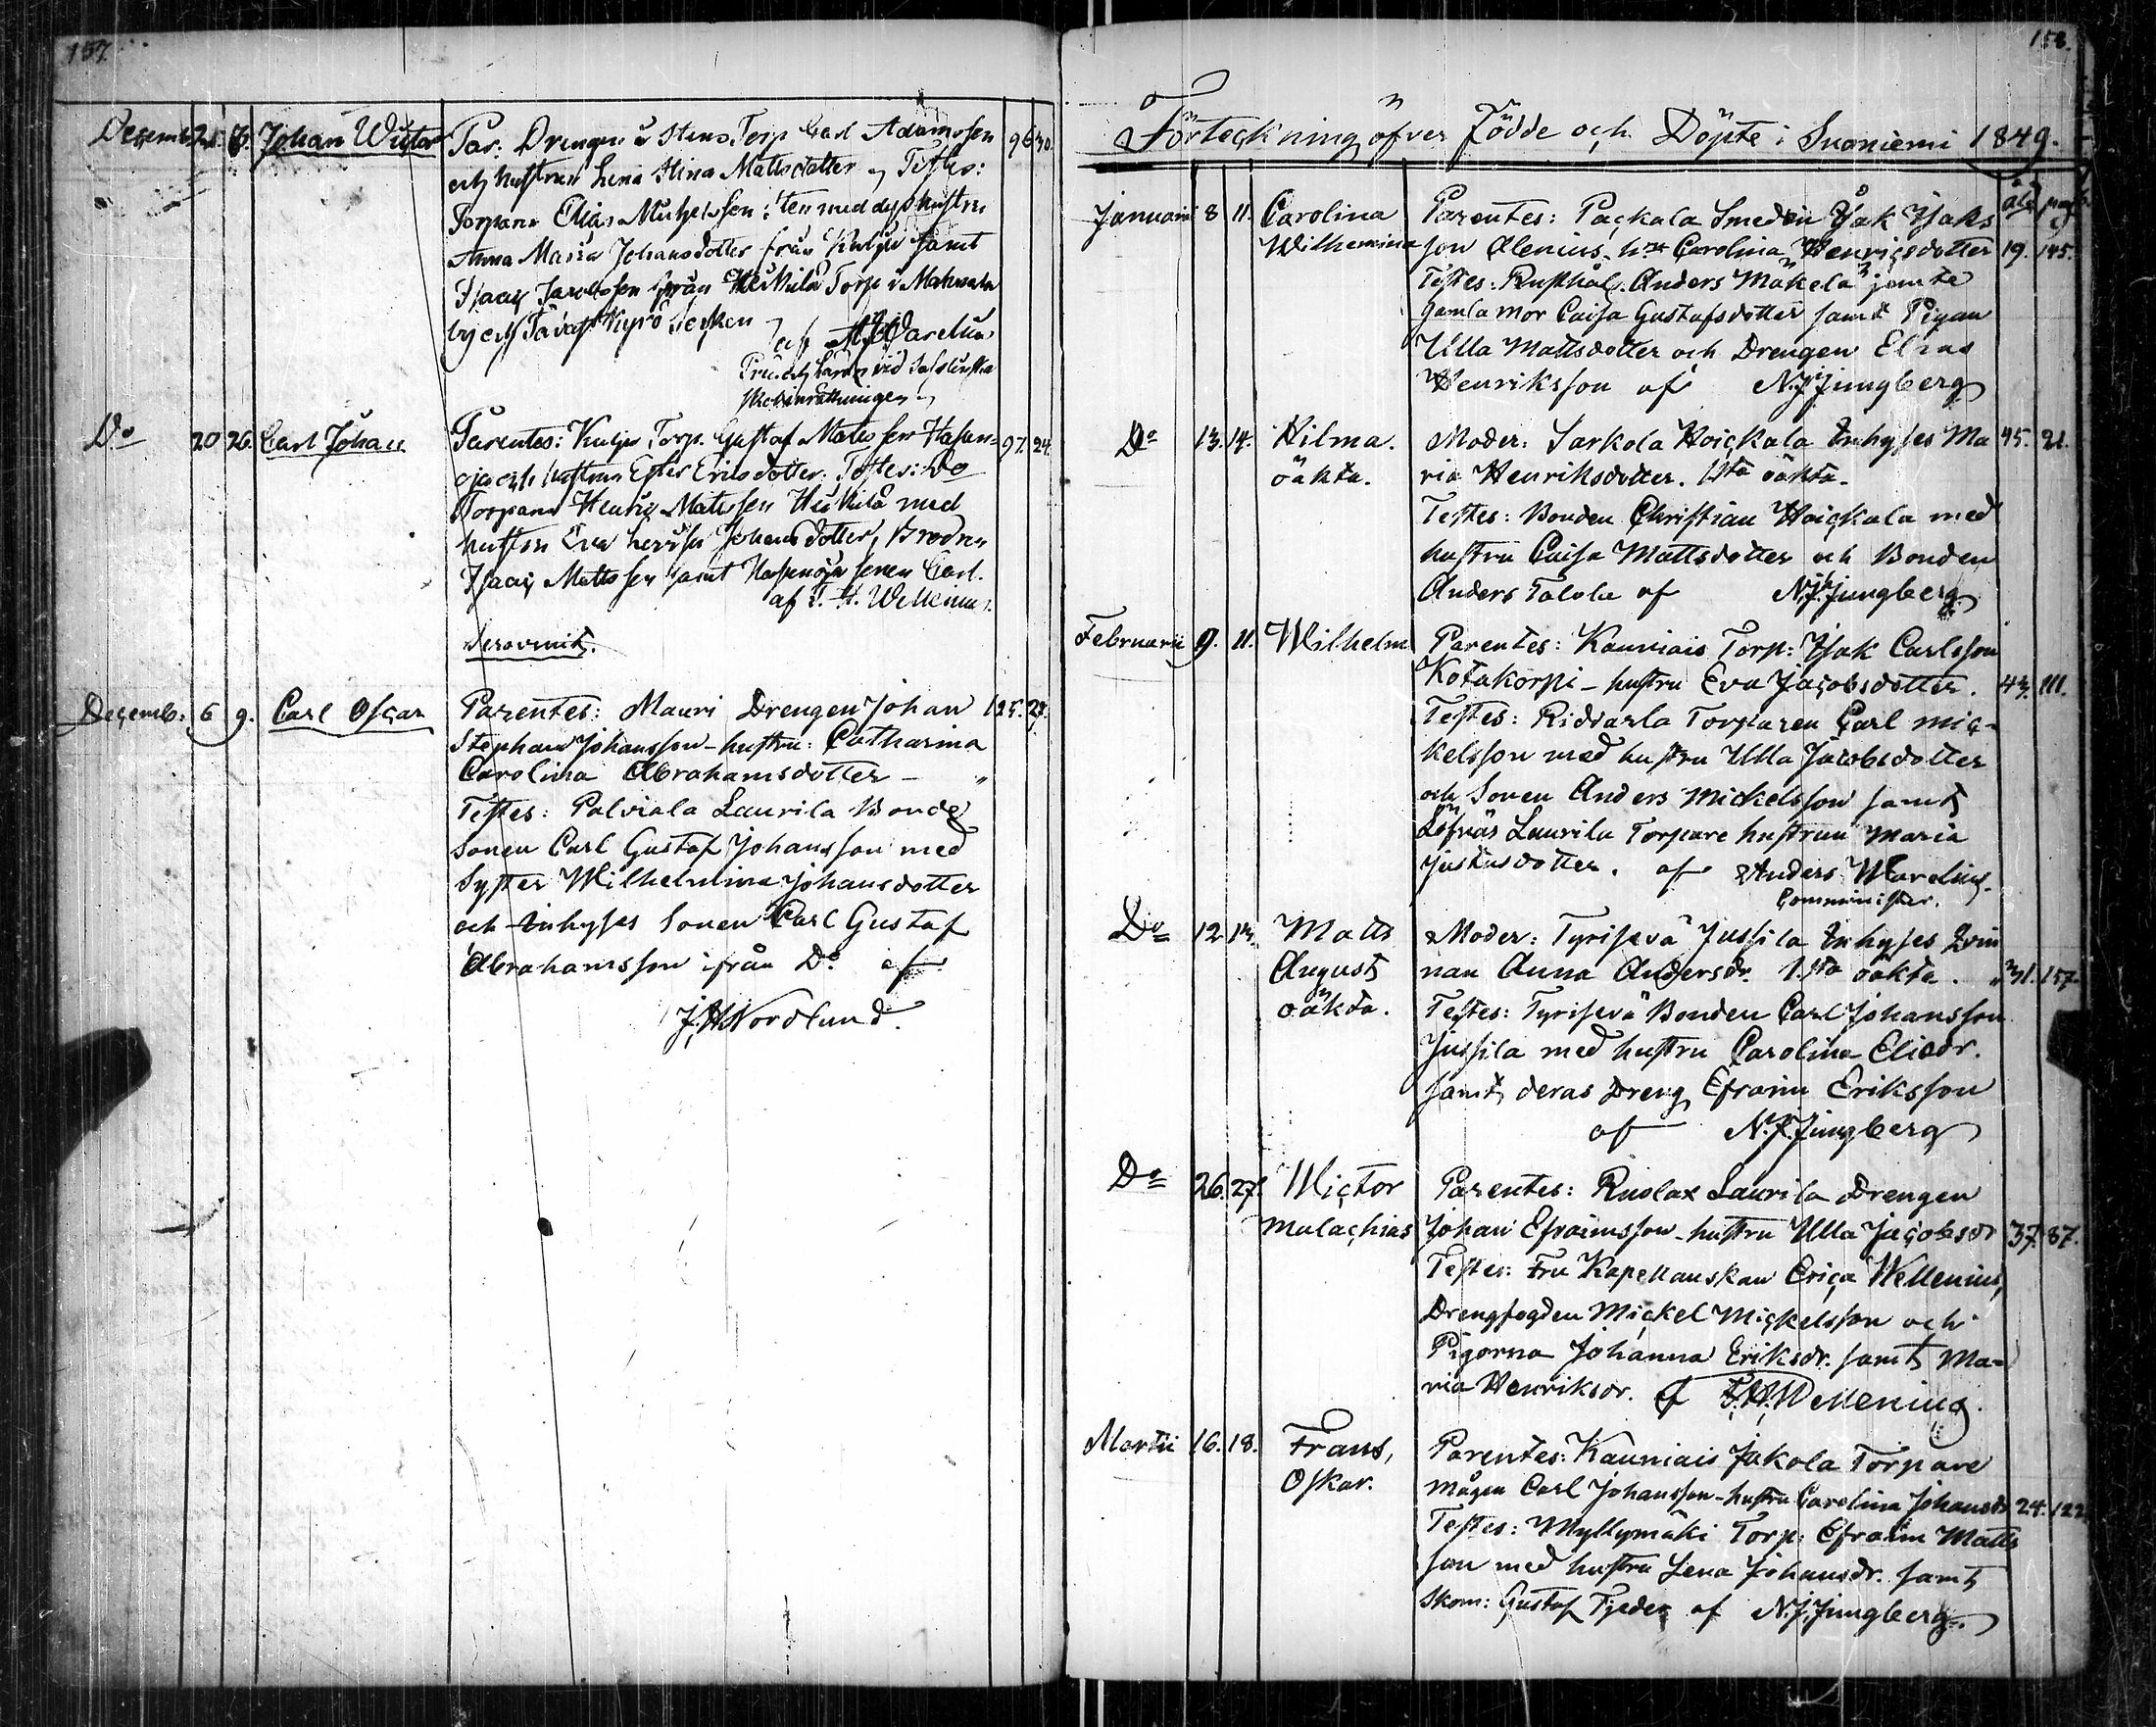 157.
Decemb. 26. Johan Wictor Par. Drengen Torp Carl Adamsson 96 30.
och hustrun Lena Stina Mattsdotter Testes:
Torparn Elias med dess hustru
Anna Maria Johansdotter från samt
Isaac från Heikkilä Torp i
by och Tavast Kyrö
af Warelius
Do 20 26. Carl Johan Parentes: Torp. Gustaf Matsson 97. 24.
och hustrun Ester Ericsdotter. Testes: Do
Torparn Henric Matsson Heikkilä med
hustru Eva Johansdotter, Brodren
Isaac Mattsson samt sonen Carl.
af F. H. Wellenius.
Decemb. 6 9. Carl Oscar Parentes: Mauri Drengen Johan 125. 28.
Stephan Johansson - hustru: Catharina
Carolina Abrahamsdotter -
Testes: Palviala Laurila Bonde
sonen Carl Gustaf Johansson med
Syster Wilhelmina Johansdotter
och inhyses Sonen Carl Gustaf
Abrahamsson ifrån Do af
J. H. Nordlund.
158.
Förteckning öfver Födde och Döpte i Suoniemi 1849.
Januarii 8 11. Carolina Parentes: Packala Smeden Isak Isaks
Wilhemina son Alenius, hru Carolina Henricsdotter 19. 145.
Testes: Rusthål. Anders Mäkelä jemte
gamla mor Caisa Gustafsdotter samt Pigan
Ulla Mattsdotter och Drengen Elias
Henriksson af N. J. Jungberg
Do 13. 14. Hilma. Moder: Sarkola Hoickala Inhyses Ma 45. 21.
oäkta. ria Henriksdotter. 1sta oäkta.
Testes: Bonden Christian Hoickala med
hustru Caisa Mattsdotter och Bonden
Anders Talola af N. J. Jungberg
Februarii 9. 11. Wilhelm Parentes: Kauniais Torp: Isak Carlsson
Kotakorpi - hustru Eva Jacobsdotter. 43. 111.
Testes: Riddarla Torparen Carl Mic-
kelsson med hustru Ulla Jacobsdotter
och Sonen Anders Mickelsson samt
Löfnäs Laurila Torpare hustrun Maria
Justusdotter. af Anders Warelius.
Comminister.
Do 12. 13. Matts Moder: Tyrisevä Jussila Inhyses Qvin
August nan Anna Andersdr. 1sta oäkta. 31. 157.
oäkta. Testes: Tyrisevä Bonden Carl Johansson
Jussila med hustru Carolina Eliædr.
samt deras Dreng Efraim Eriksson
af N. J. Jungberg
Do 26. 27. Wictor Parentes: Kuolax Laurila Drengen
Malachias Johan Efraimsson - hustru Ulla Jacobsdr 37. 87.
Testes: Fru Kapellanskan Erica Wellenius,
Drengfogden Mickel Mickelsson och
Pigorna Johanna Eriksdr. samt Ma-
ria Henriksdr. af F. H. Wellenius.
Martii 16. 18. Frans, Parentes: Kauniais Jakola Torpare
Oskar. mågen Carl Johansson - hustru Carolina Johansdr 24. 122
Testes: Myllymäki Torp: Efraim Matts
son med hustru Lena Johansdr. samt
Skom: Gustaf Tjeder af N. J. Jungberg.